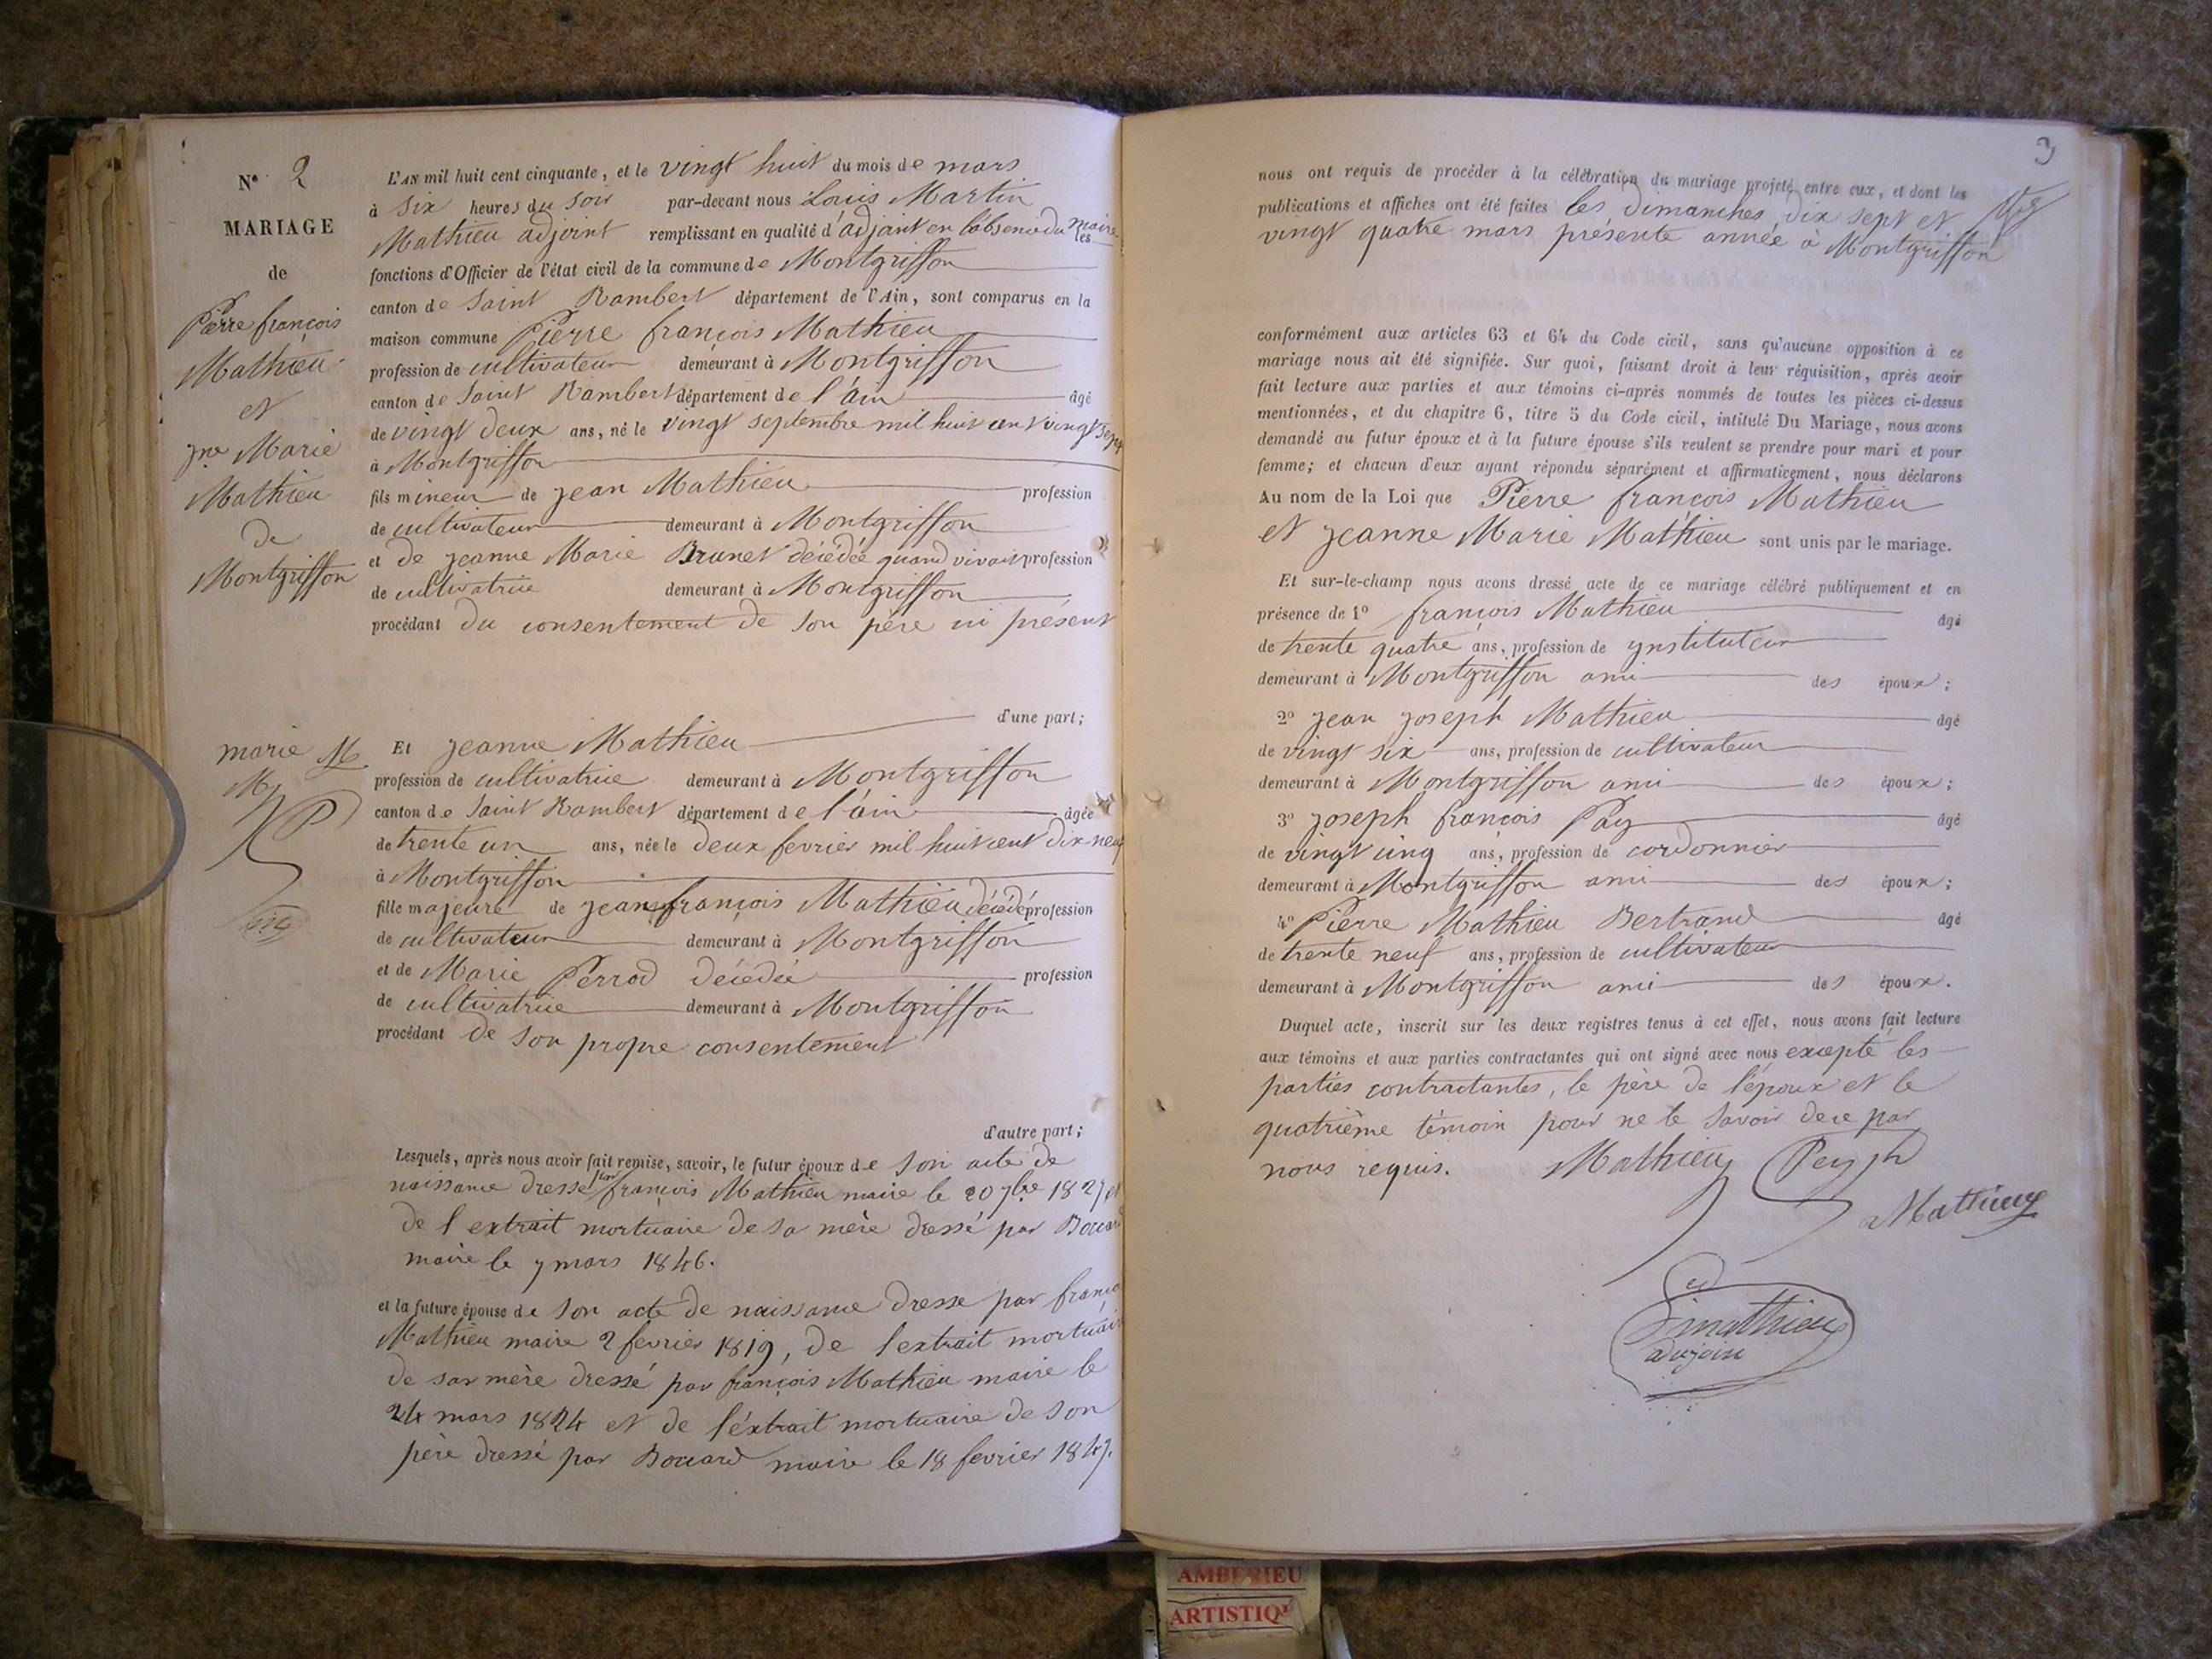 N° 2
MARIAGE
de
Pierre françois
Mathieu
et
jne Marie
Mathieu
de
Montgriffon
L'AN mil huit cent cinquante, et le vingt huit du mois de mars
à six heures du soir par-devant nous Louis Martin
Mathieu adjoint remplissant en qualité d'adjoint en l'absence du maire les
fonctions d'Officier de l'état civil de la commune de Montgriffon
canton de Saint Rambert département de l'Ain, sont comparus en la
maison commune Pierre françois Mathieu
profession de cultivateur demeurant à Montgriffon
canton de Saint Rambert département de l'ain âgé
de vingt deux ans, né le vingt septembre mil huit cent vingt sept
à Montgriffon
fils mineur de jean Mathieu profession
de cultivateur demeurant à Montgriffon
et de jeanne Marie Brunet décédée quand vivait profession
de cultivatrice demeurant à Montgriffon
procédant du consentement de son père ici présent
d'une part;
marie M
M
P
Et jeanne Mathieu
profession de cultivatrice demeurant à Montgriffon
canton de Saint Rambert département de l'ain âgée
de trente un ans, née le deux fevrier mil huit cent dix neuf
à Montgriffon
fille majeure de jean françois Mathieu décédé profession
de cultivateur demeurant à Montgriffon
et de Marie Perrod décédée profession
de cultivatrice demeurant à Montgriffon
procédant de son propre consentement
d'autre part;
Lesquels, après nous avoir fait remise, savoir, le futur époux de son acte de
naissance dressé par françois Mathieu maire le 20 7bre 1827 et
de l'extrait mortuaire de sa mère dressé par
maire le 7 mars 1846.
et la future épouse de son acte de naissance dresse par
Mathieu maire 2 fevrier 1819, de l'extrait mortuaire
de sa mère dressé par françois Mathieu maire le
24 mars 1824 et de l'éxtrait mortuaire de son
père dressé par maire le 18 fevrier 1847.
3
nous ont requis de procéder à la célébration du mariage projeté entre eux, et dont les
publications et affiches ont été faites les dimanches dix sept et
vingt quatre mars présente année à Montgriffon
conformément aux articles 63 et 64 du Code civil, sans qu'aucune opposition à ce
mariage nous ait été signifiée. Sur quoi, faisant droit à leur réquisition, après avoir
fait lecture aux parties et aux témoins ci-après nommés de toutes les pièces ci-dessus
mentionnées, et du chapitre 6, titre 5 du Code civil, intitulé Du Mariage, nous avons
demandé au futur époux et à la future épouse s'ils veulent se prendre pour mari et pour
femme; et chacun d'eux ayant répondu séparément et affirmativement, nous déclarons
Au nom de la Loi que Pierre françois Mathieu
et jeanne Marie Mathieu sont unis par le mariage.
Et sur-le-champ nous avons dressé acte de ce mariage célébré publiquement et en
présence de 1° françois Mathieu âgé
de trente quatre ans, profession de ynstituteur
demeurant à Montgriffon ami des époux;
2° jean joseph Mathieu âgé
de vingt six ans, profession de cultivateur
demeurant à Montgriffon ami des époux;
3° joseph françois Pey âgé
de vingt cinq ans, profession de cordonnier
demeurant à Montgriffon ami des époux;
4° Pierre Mathieu Bertrand âgé
de trente neuf ans, profession de cultivateur
demeurant à Montgriffon ami des époux.
Duquel acte, inscrit sur les deux registres tenus à cet effet, nous avons fait lecture
aux témoins et aux parties contractantes qui ont signé avec nous excepté les
parties contractantes, le père de l'époux et le
quatrième témoin pour ne le savoir de ce par
nous requis. Mathieu Pey jh
Mathieu
mathieu
adjoin
AMBERIEU
ARTISTIQ